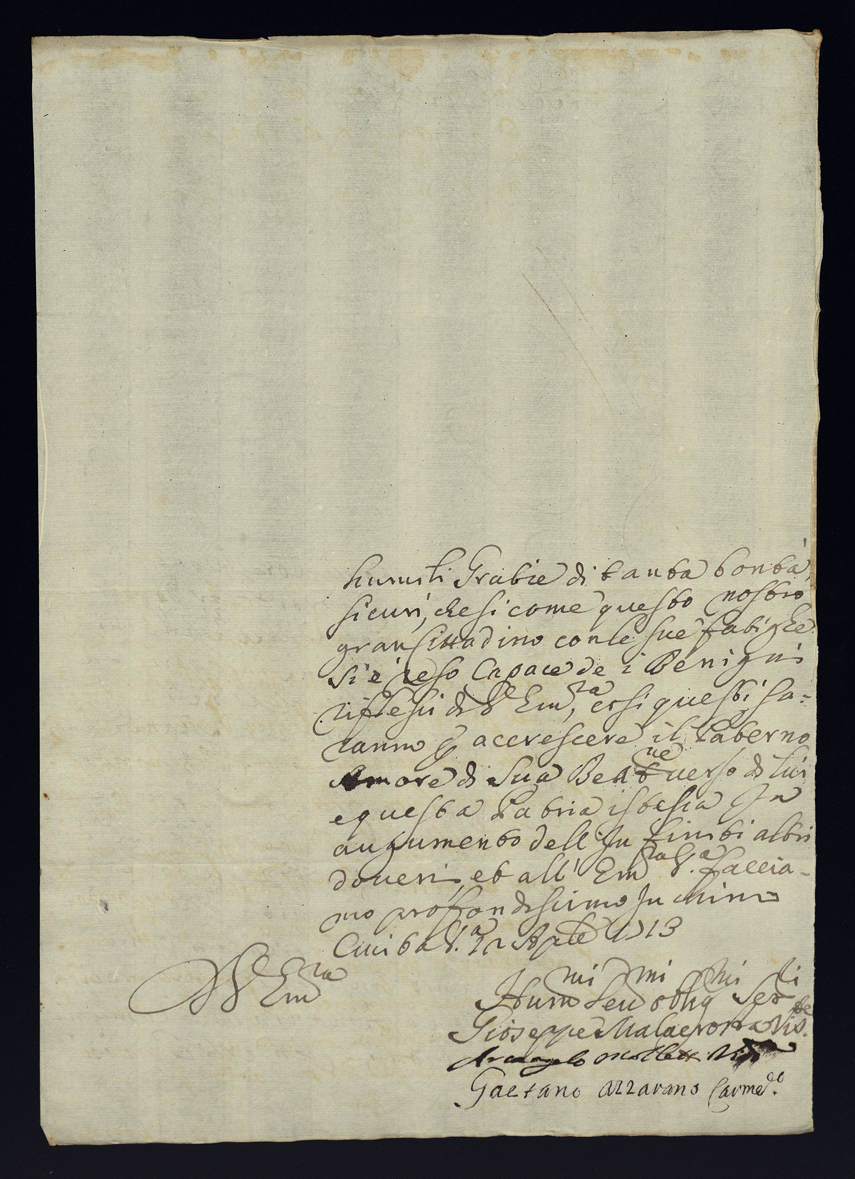 humili Gratie di tanta bontà,
sicuri, che si come questo nostro
gran Cittadino con le sue fatighe
si è reso Capace de i Benigni
riflessi di V. Em.za, così questi sa-
ranno p acerescere il Paterno
Amore di Sua Beat.ne verso di lui
e questa Patria istessa In
augumento dell' In tanti altri
doveri, et all' Em.za V.a faccia-
mo proffondissimo Inchino
Civita V.a 12 Aple 1713
D V. Em.za
Hum.mi Dev.mi oblig.mi Ser.ri
Gioseppe Vis.
Arcangelo
Gaetano Azzarano Carme.